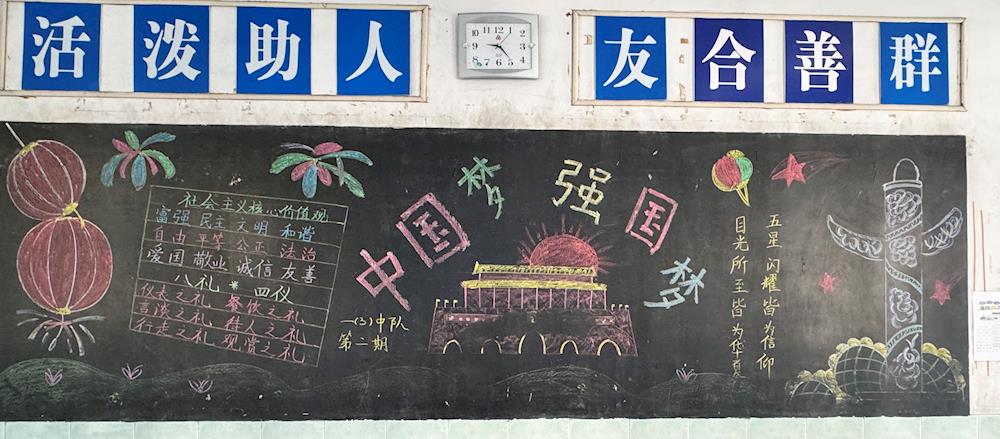 活泼助人
友合善群
中国梦 强国梦
社会主义核心价值观
富强 民主 文明 和谐
自由 平等 公正 法治
爱国 敬业 诚信 友善
八礼 * 四仪
仪表之礼、餐饮之礼
言谈之礼、待人之礼
行走之礼、观赏之礼
一(3)中队
第二期
五星闪耀皆为信仰
目光所至皆为华夏